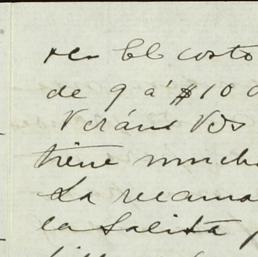 El costo
de 9 á $10
Verán Vds
tiene mucha
La recama
la Salita